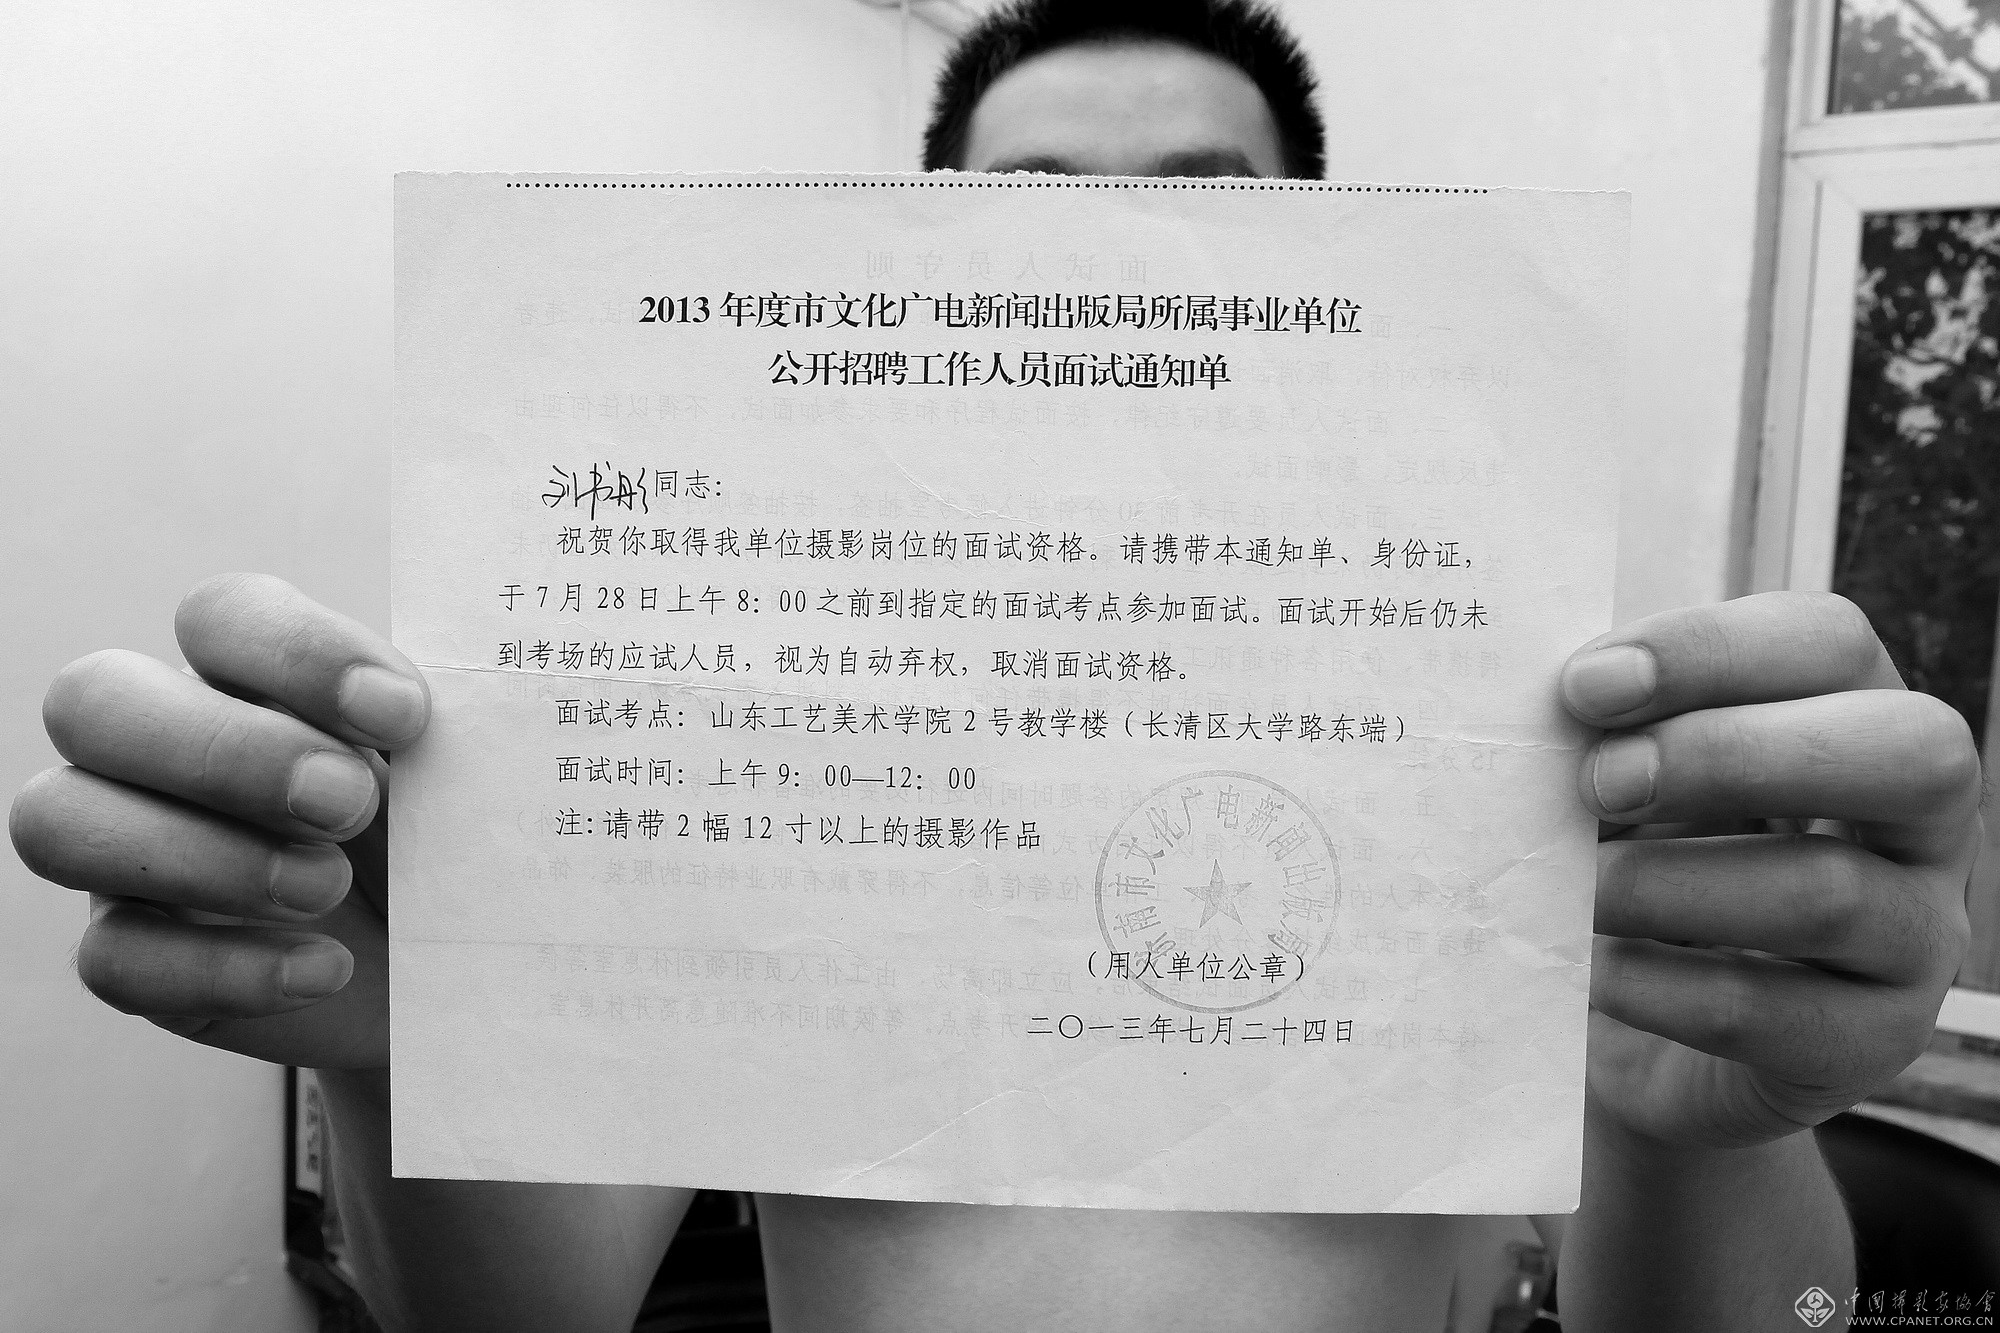 2013年度市文化广电新闻出版局所属事业单位
公开招聘工作人员面试通知单
刘书彤同志:
祝贺你取得我单位摄影岗位的面试资格。请携带本通知单、身份证,
于7月28日上午8：00之前到指定的面试考点参加面试。面试开始后仍未
到考场的应试人员，视为自动弃权，取消面试资格。
面试考点：山东工艺美术学院2号教学楼（长清区大学路东端）
面试时间：上午9：00—12：00
注:请带2幅12寸以上的摄影作品
济南市文化广电新闻出版局
（用人单位公章）
二〇一三年七月二十四日
中国摄影家协会
WWW.CPANET.ORG.CN